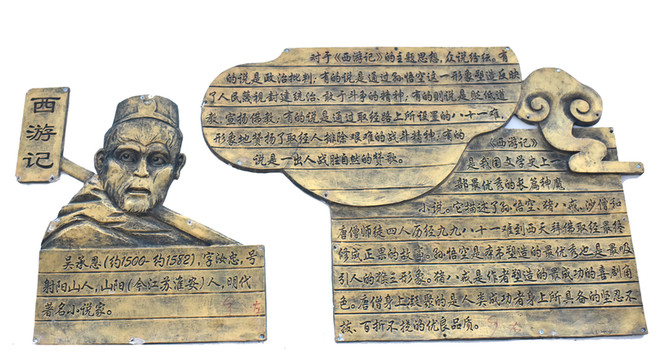 西游记
吴承恩(约1500-约1582),字汝忠,号
射阳山人,山阳(今江苏淮安)人,明代
著名小说家。
对于《西游记》的主题思想,众说纷纭。有
的说是政治批判,有的说是通过孙悟空这一形象塑造反映
了人民蔑视封建统治、敢于斗争的精神,有的则说是贬低道
教、宣扬佛教,有的说是通过取经路上所设置的八十一难,
形象地赞扬了取经人排除艰难的战斗精神,有的
说是一出人战胜自然的赞歌。
《西游记》
是我国文学史上一
部最优秀的长篇神魔
小说。它描述了孙悟空、猪八戒、沙僧和
唐僧师徒四人历经九九八十一难到西天拜佛取经最终
修成正果的故事。孙悟空是本书塑造的最优秀也是最吸
引人的猴王形象。猪八戒是作者塑造的最成功的喜剧角
色。唐僧身上凝聚的是人类成功者身上所具备的坚忍不
拔、百折不挠的优良品质。